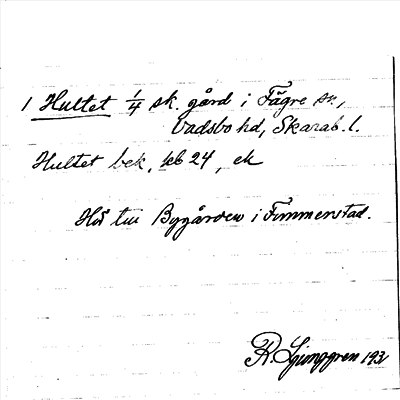 1 Hultet 1/4 sk. gård i Fägre sn.,
Vadsbo hd, Skarab. l.
Hultet bek, jeb 24, ek
Hör till Bygården i Fimmerstad.
R. Ljunggren 193